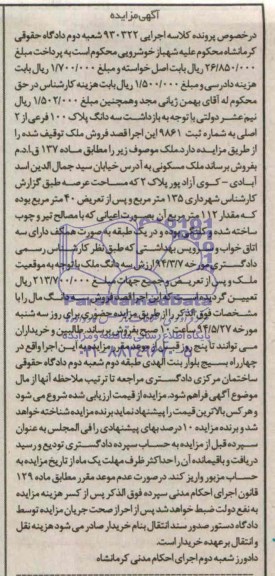 آگهی مزایده
درخصوص پرونده کلاسه اجرایی ۹۳۰۳۲۲ شعبه دوم دادگاه حقوقی
کرمانشاه محکوم علیه شهباز خوشرویی محکوم است به پرداخت مبلغ
۲۶/۸۵۰/۰۰۰ ریال بابت اصل خواسته و مبلغ ۱/۷۰۰/۰۰۰ ریال بابت
هزینه دادرسی و مبلغ ۱/۵۰۰/۰۰۰ ریال بابت هزینه کارشناس در حق
محکوم له آقای بهمن ژیانی مجد و همچنین مبلغ ۱/۵۰۲/۰۰۰ ریال
نیم عشر دولتی با توجه به بازداشت سه دانگ پلاک ۱۰۰ فرعی از ۲
اصلی به شماره ثبت ۹۸۶۱ این اجرا قصد فروش ملک توقیف شده را
از طریق مزایده دارد ملک موصوف زیر را مطابق ماده ۱۳۷ ق.ا.م
بفروش برساند ملک مسکونی به آدرس خیابان سید جمال الدین اسد
آبادی - کوی آزاد پور پلاک ۲ که مساحت عرصه طبق گزارش
کارشناس شهرداری ۱۳۵ متر مربع و پس از تعریض ۴۰ متر مربع بوده
که مقدار ۱۱۲ متر مربع آن بصورت اعیانی که با مصالح تیر و چوب
ساخته شده و کلنگی بوده و در یک طبقه به صورت همکف دارای سه
اتاق خواب و سرویس بهداشتی که طبق نظر کارشناس رسمی
دادگستری مورخه ۹۴/۳/۷ ارزش سه دانگ ملک با توجه به موقعیت
ملک و پس از تعریض و جمیع جهات مبلغ ۲۱۳/۷۰۰/۰۰۰ ریال
تعیین گردیده است
مشخصات فوق الذکر را از طریق مزایده حضوری برای روز سه شنبه
مورخه ۹۴/۵/۲۷ ساعت ۱۰ صبح بفروش برساند. طالبین و خریداران
می توانند تا پنج روز قبل از موعد مقرر مزایده به این اجرا واقع در
چهارراه بسیج بلوار بنت الهدی طبقه دوم شعبه دوم دادگاه حقوقی
ساختمان مرکزی دادگستری مراجعه تا ترتیب ملاحظه آنها از مال
موضوع آگهی فراهم شود. مزایده از قیمت ارزیابی شده شروع می شود
و هر کس بالاترین قیمت را پیشنهاد نماید برنده مزایده شناخته خواهد
شد و برنده مزایده ۱۰ درصد بهای پیشنهادی را فی المجلس به عنوان
سپرده قبل از مزایده به حساب سپرده دادگستری تودیع و رسید
دریافت و باقیمانده آن را حداکثر ظرف مهلت یک ماه از تاریخ مزایده به
حساب مزبور واریز کند. در صورت عدم موعد مقرر مطابق ماده ۱۲۹
قانون اجرای احکام مدنی سپرده فوق الذکر پس از کسر هزینه مزایده
به نفع دولت ضبط خواهد شد پس از احراز صحت جریان مزایده توسط
دادگاه دستور صدور سند انتقال بنام خریدار صادر می شود هزینه نقل
و انتقال بر عهده خریدار است.
دادورز شعبه دوم اجرای احکام مدنی کرمانشاه
پایگاه اطلاع رسانی مناقصه و مزایده